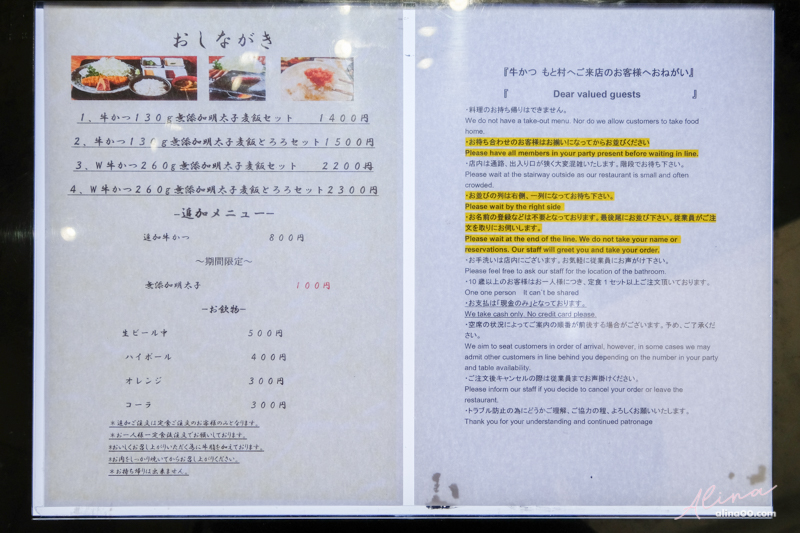 おしながき
1. 牛かつ130g無添加明太子麦飯セット 1400円
2. 牛かつ130g無添加明太子麦飯とろろセット1500円
3. W牛かつ260g無添加明太子麦飯セット 2200円
4. W牛かつ260g無添加明太子麦飯とろろセット2300円
-追加メニュー-
追加牛かつ 800円
〜期間限定〜
無添加明太子 100円
-お飲物-
生ビール中 500円
ハイボール 400円
オレンジ 300円
コーラ 300円
※追加ご注文は定食ご注文のお客様のみとなります。
※お一人様一定食後注文でお願いしております。
※おいしくお召し上がりいただく為に牛脂を加えております。
※お肉をしっかり焼いてからお召し上がりください。
※お持ち帰りは出来ません。
『牛かつ もと村へご来店のお客様へおねがい』
『 Dear valued guests 』
・料理のお持ち帰りはできません。
We do not have a take-out menu. Nor do we allow customers to take food
home.
・お待ち合わせのお客様はお揃いになってからお並びください
Please have all members in your party present before waiting in line.
・店内は通路、出入り口が狭く大変混雑いたします。階段でお待ち下さい。
Please wait at the stairway outside as our restaurant is small and often
crowded.
・お並びの列は右側、一列になってお待ち下さい。
Please wait by the right side
・お名前の登録などは不要となっております。最後尾にお並び下さい。従業員がご注
文を取りにお伺いします。
Please wait at the end of the line. We do not take your name or
reservations. Our staff will greet you and take your order.
・お手洗いは店内にございます。お気軽に従業員にお声がけ下さい。
Please feel free to ask our staff for the location of the bathroom.
・10歳以上のお客様はお一人様につき、定食1セット以上ご注文頂いております。
One one person It can`t be shared
・お支払は「現金のみ」となっております。
We take cash only. No credit card please.
・空席の状況によってご案内の順番が前後する場合がございます。予め、ご了承くだ
さい。
We aim to seat customers in order of arrival, however, in some cases we may
admit other customers in line behind you depending on the number in your party
and table availability.
・ご注文後キャンセルの際は従業員までお声掛けください。
Please inform our staff if you decide to cancel your order or leave the
restaurant.
・トラブル防止の為にどうかご理解、ご協力の程、よろしくお願いいたします。
Thank you for your understanding and continued patronage
Alina
alina00.com